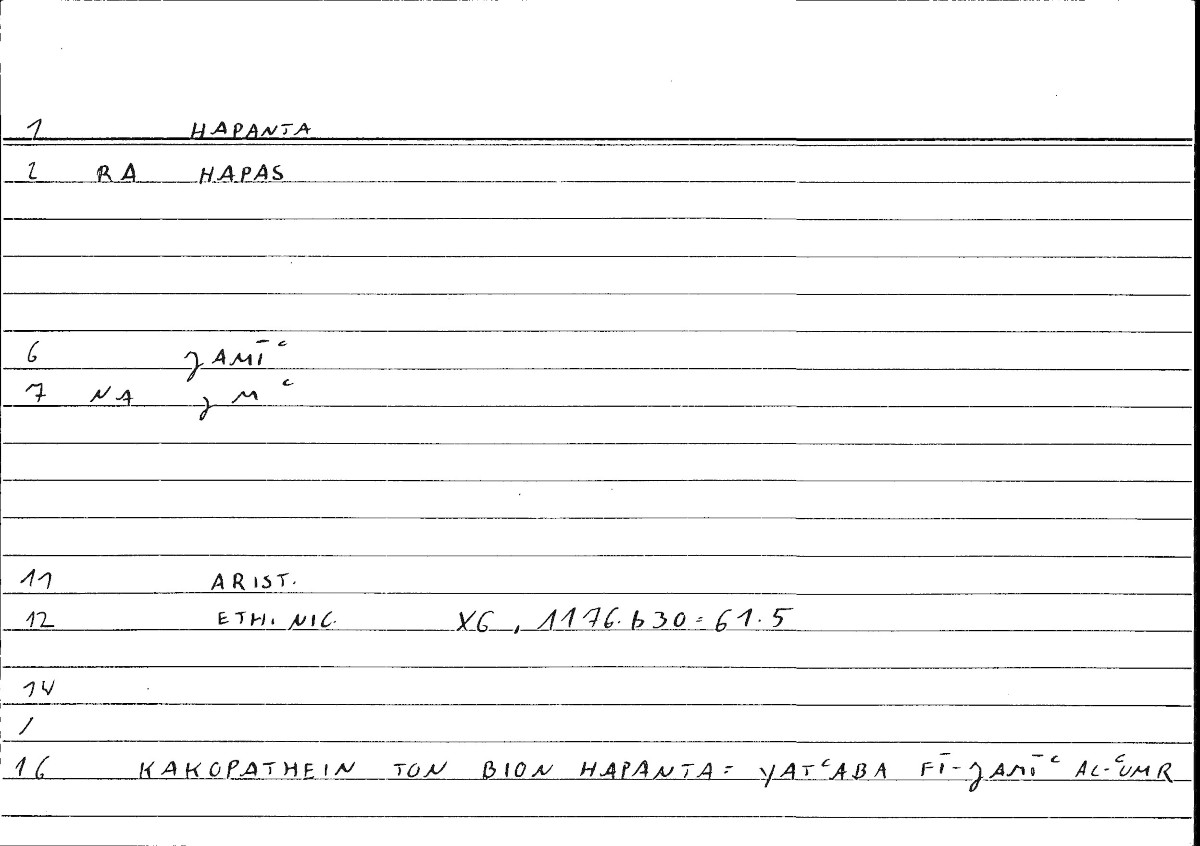 1 HAPANTA
2 RA HAPAS
6 ʒAMĪʿ
7 NA ʒMʿ
11 ARIST.
12 ETH. NIC. X6, 1176.b30=61.5
14
/
16 KAKOPATHEIN TON BION HAPANTA= YATʿABA FĪ-ʒAMĪʿ AL-ʿUMR